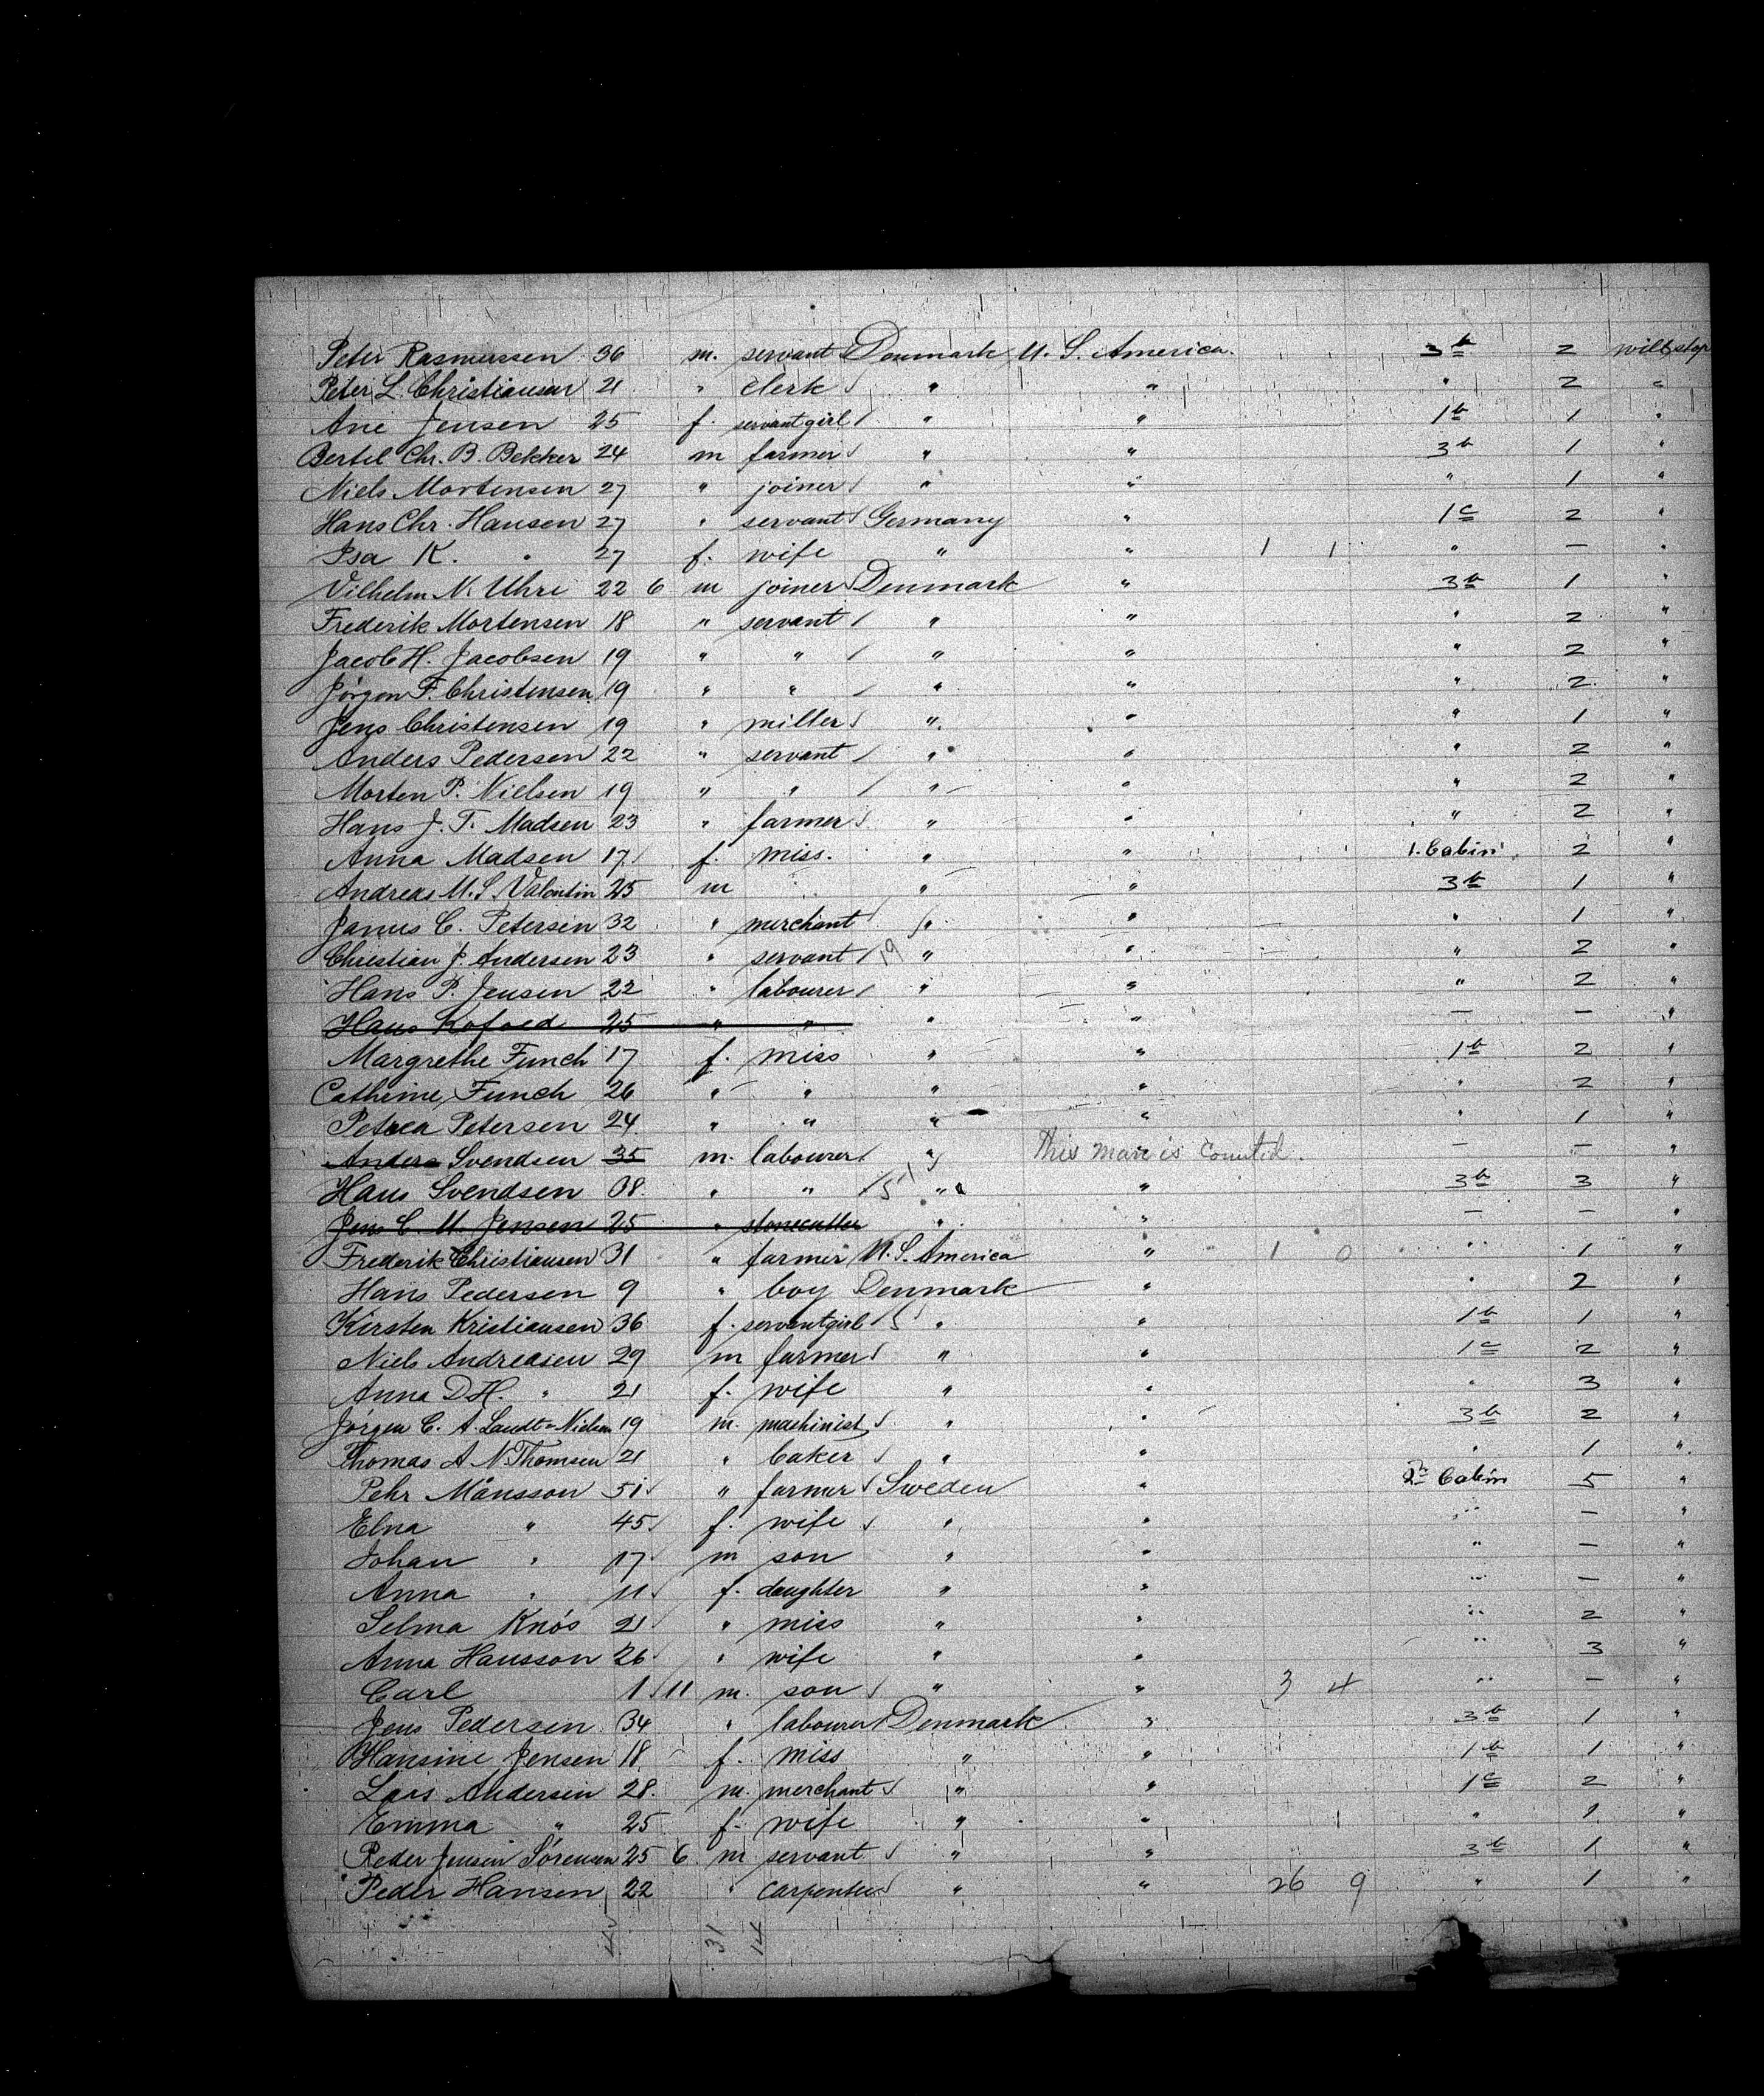 Peter Rasmussen 36 m. servant Denmark U. S. America. 3b 2 will stop
Peter L. Christiansen 21 " clerk " " " 2 "
Ane Jensen 25 f. servantgirl " " 1b 1 "
Bertel Chr. B. Bekker 24 m farmer " " 3b 1 "
Niels Mortensen 27 " joiner " " " 1 "
Hans Chr. Hansen 27 " servant Germany " 1c 2 "
Isa K. " 27 f. wife " " 1 1 " — "
Vilhelm N. Uhre 22 6 m joiner Denmark " 3b 1 "
Frederik Mortensen 18 " servant " " " 2 "
Jacob H. Jacobsen 19 " " " " " 2 "
Jörgen F. Christensen 19 " " " " " 2. "
Jens Christensen 19 " miller " " " 1 "
Anders Pedersen 22 " servant " " " 2 "
Morten P. Nielsen 19 " " " " " 2 "
Hans J. T. Madsen 23 " farmer " " " 2 "
Anna Madsen 17 f. miss. " " 1. Cabin 2 "
Andreas M. S. Valentin 25 m " " 3b 1 "
Janus C. Petersen 32 " merchant " " " 1 "
Christian J. Andersen 23 " servant 19 " " " 2 "
Hans P. Jensen 22 " labourer " " " 2 "
Hans Kofoed 25 " " " " — — "
Margrethe Funch 17 f. miss " " 1b 2 "
Cathrine Funch 26 " " " " " 2 "
Petrea Petersen 24 " " " " " 1 "
Anders Svendsen 35 m. labourer " This man is counted. — — "
Hans Svendsen 38. " " " " 3b 3 "
Jens C. M. Jensen 25 " stonecutter " " — — "
Frederik Christiansen 31 " farmer U. S. America " 1 0 " 1 "
Hans Pedersen 9 " boy Denmark " " 2 "
Kirsten Kristiansen 36 f. servantgirl " " 1b 1 "
Niels Andreasen 29 m farmer " " 1c 2 "
Anna D. H. " 21 f. wife " " " 3 "
Jörgen C. A. Landt-Nielsen 19 m. mashinist " " 3b 2 "
Thomas A N. Thomsen 21 " baker " " " 1 "
Pehr Månsson 51 " farmer Sweden " 2n Cabin 5 "
Elna " 45 f. wife " " " — "
Johan " 17 m son " " " — "
Anna " 11 f. daughter " " " — "
Selma Knös 21 " miss " " " 2 "
Anna Hansson 26 " wife " " " 3 "
Carl 1 11 m. son " " 3 4 " — "
Jens Pedersen 34 " labourer Denmark " 3b 1 "
Hansine Jensen 18 f. miss " " 1b 1 "
Lars Andersen 28. m. merchant " " 1c 2 "
Emma " 25 f. wife " " " 1 "
Peder Jensen Sörensen 25 6 m servant " " 3b 1 "
Peder Hansen 22 " carpenter " " 26 9 " 1 "
31 14